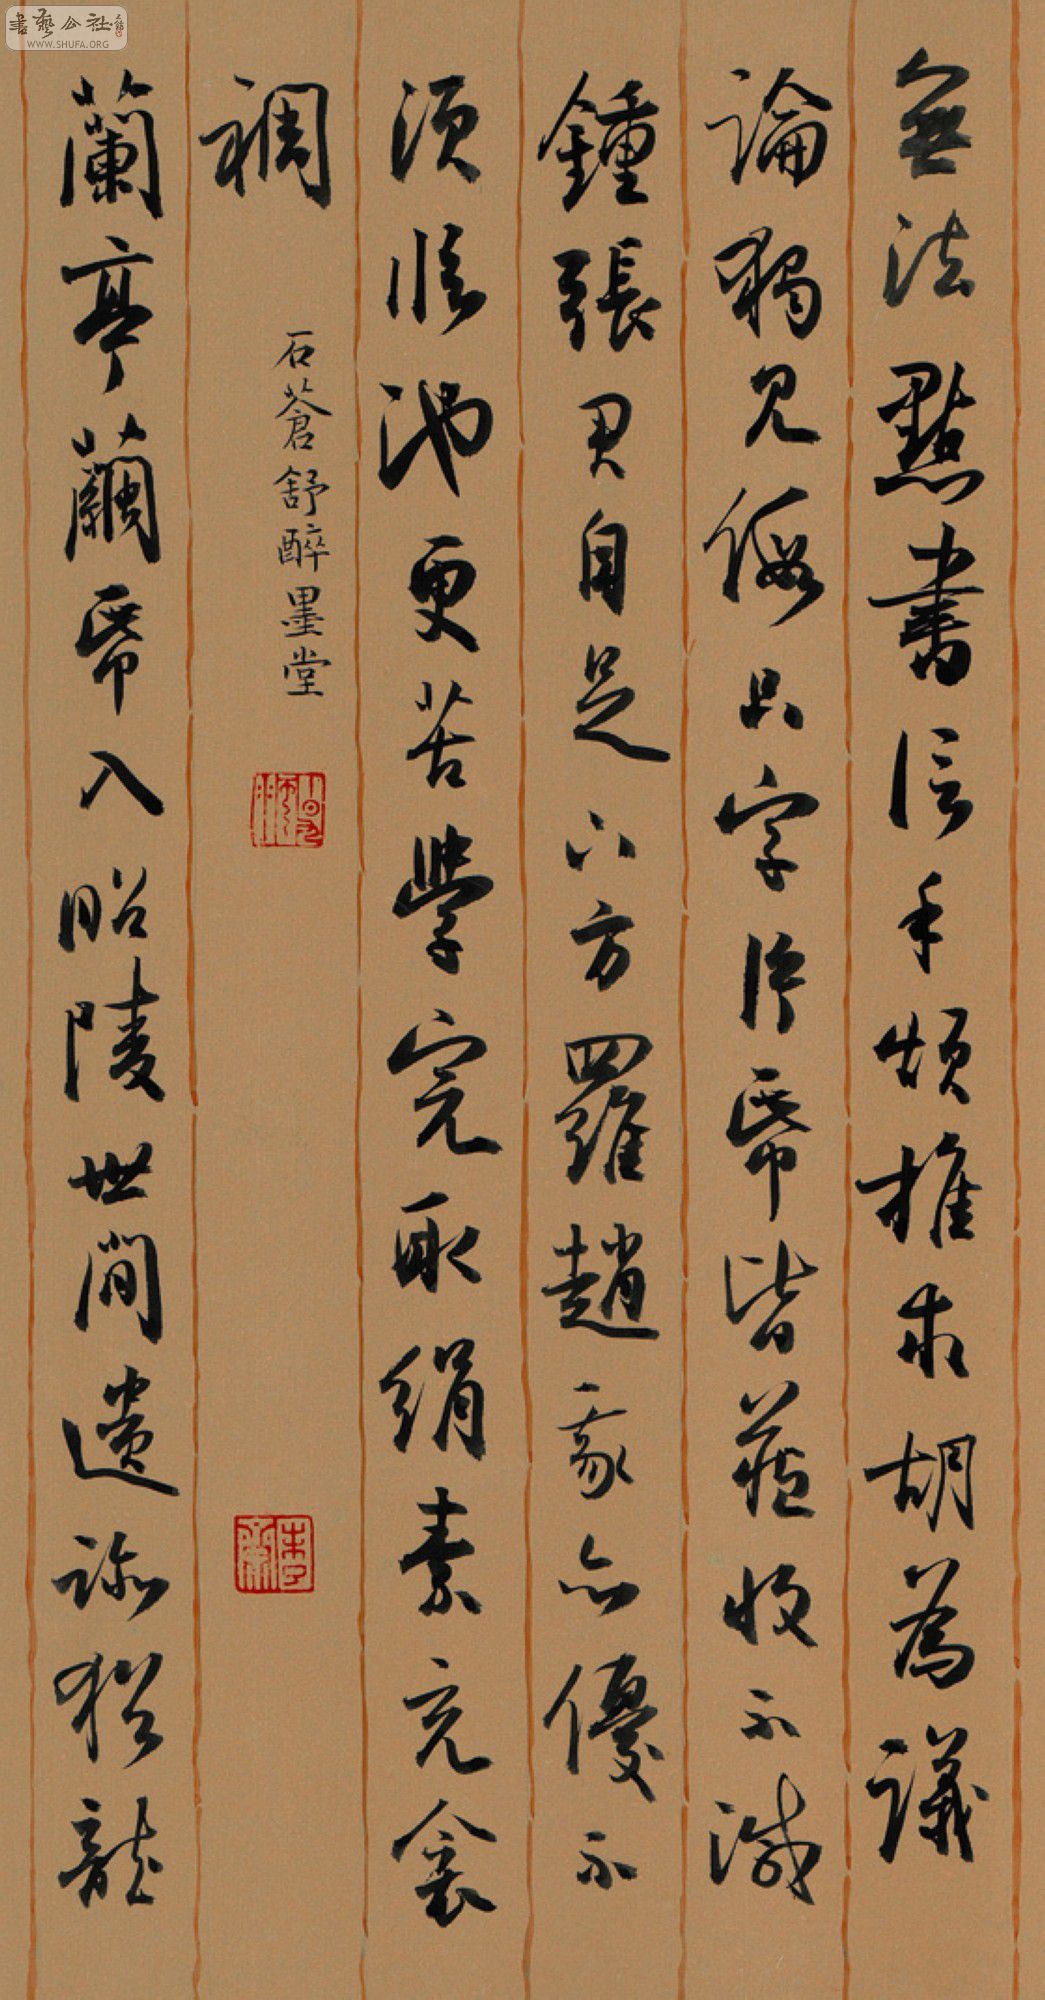 書藝公社
WWW.SHUFA.ORG
無法點畫信手煩推求胡為議
論獨見假只字片帋皆藏收不減
鍾張君自足下方羅趙我亦優不
須臨池更苦學完取絹素充衾
裯
石蒼舒醉墨堂
蘭亭繭帋入昭陵世間遺跡猶龍